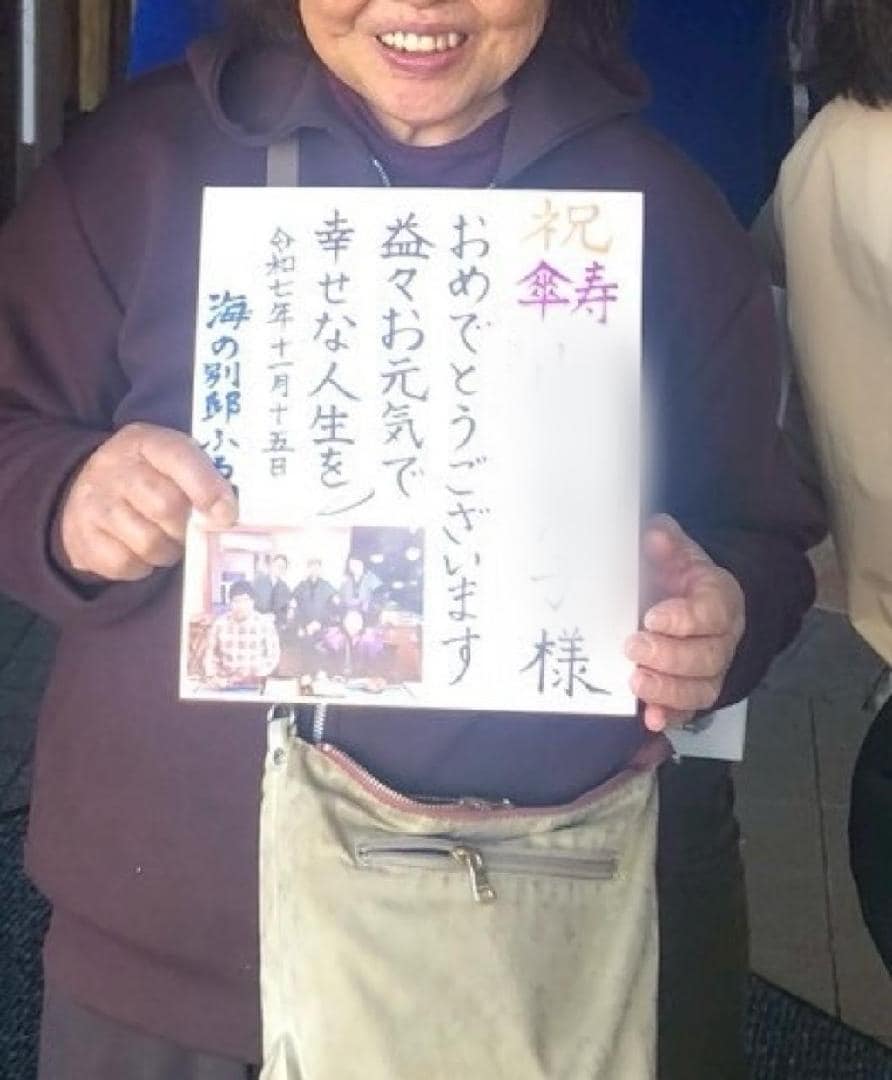 祝
傘寿
様
おめでとうございます
益々お元気で
幸せな人生を
令和七年十一月十五日
海の別邸ふる